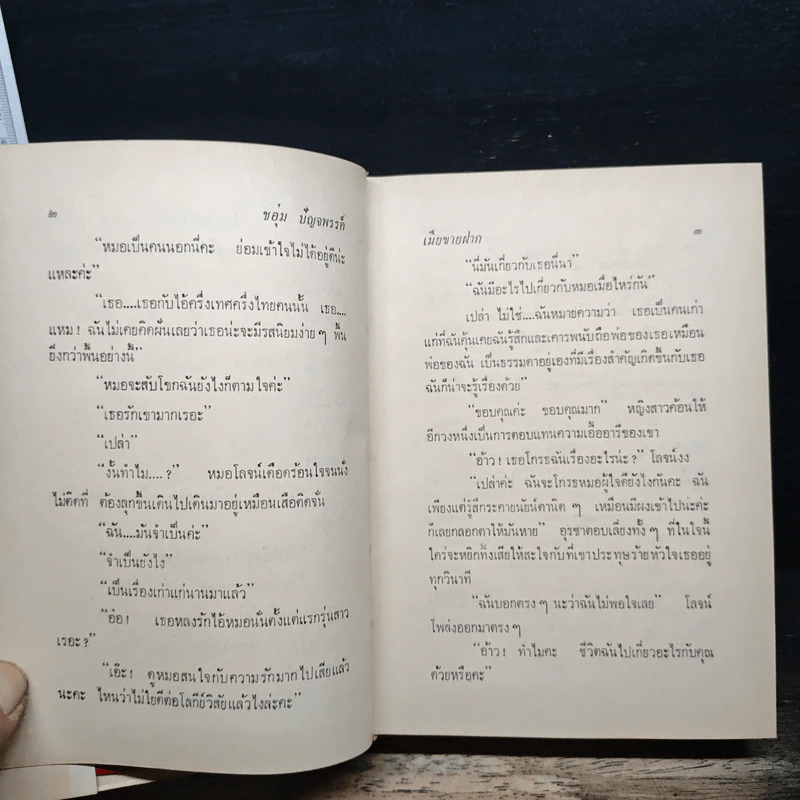 ๒
ขอุ่ม ปัญจพรรค์
“หมอเป็นคนนอกนี่คะ ย่อมเข้าใจไม่ได้อยู่ดีน่ะ
แหละค่ะ”
“เธอ....เธอกับไอ้ครึ่งเทศครึ่งไทยคนนั้น เธอ....
แหม! ฉันไม่เคยคิดฝันเลยว่าเธอน่ะจะมีรสนิยมง่าย ๆ พื้น
ยิ่งกว่าพื้นอย่างนี้”
“หมอจะสับโขกฉันยังไงก็ตามใจค่ะ”
“เธอรักเขามากเรอะ”
“เปล่า”
“งั้นทำไม....?” หมอโลจน์เดือดร้อนใจจนนั่ง
ไม่ติดที่ ต้องลุกขึ้นเดินไปเดินมาอยู่เหมือนเสือติดจั่น
“ฉัน....มันจำเป็นค่ะ”
“จำเป็นยังไง”
“เป็นเรื่องเก่าแก่นานมาแล้ว”
“อ๋อ! เธอหลงรักไอ้หมอนั่นตั้งแต่แรกรุ่นสาว
เรอะ?”
“เอ๊ะ! ดูหมอสนใจกับความรักมากไปเสียแล้ว
นะคะ ไหนว่าไม่ใยดีต่อโลกีย์วิสัยแล้วไงล่ะคะ”
เมียขายฝาก
๓
“นี่มันเกี่ยวกับเธอนี่นา”
“ฉันมีอะไรไปเกี่ยวกับหมอเมื่อไหร่กัน”
เปล่า ไม่ใช่....ฉันหมายความว่า เธอเป็นคนเก่า
แก่ที่ฉันคุ้นเคยฉันรู้สึกและเคารพนับถือพ่อของเธอเหมือน
พ่อของฉัน เป็นธรรมดาอยู่เองที่มีเรื่องสำคัญเกิดขึ้นกับเธอ
ฉันก็น่าจะรู้เรื่องด้วย”
“ขอบคุณค่ะ ขอบคุณมาก” หญิงสาวค้อนให้
อีกวงหนึ่งเป็นการตอบแทนความเอื้ออารีของเขา
“อ้าว! เธอโกรธฉันเรื่องอะไรน่ะ?” โลจน์งง
“เปล่าค่ะ ฉันจะโกรธหมอผู้ใจดียังไงกันคะ ฉัน
เพียงแต่รู้สึกระคายนัยน์ตานิด ๆ เหมือนมีผงเข้าไปน่ะค่ะ
ก็เลยกลอกตาให้มันหาย” อุรชาตอบเลี่ยงทั้ง ๆ ที่ในใจนี้
ใคร่จะหยิกทึ้งเสียให้สะใจกับที่เขาประทุษร้ายหัวใจเธออยู่
ทุกวินาที
“ฉันบอกตรง ๆ นะว่าฉันไม่พอใจเลย” โลจน์
โพล่งออกมาตรง ๆ
“อ้าว! ทำไมคะ ชีวิตฉันไปเกี่ยวอะไรกับคุณ
ด้วยหรือคะ”